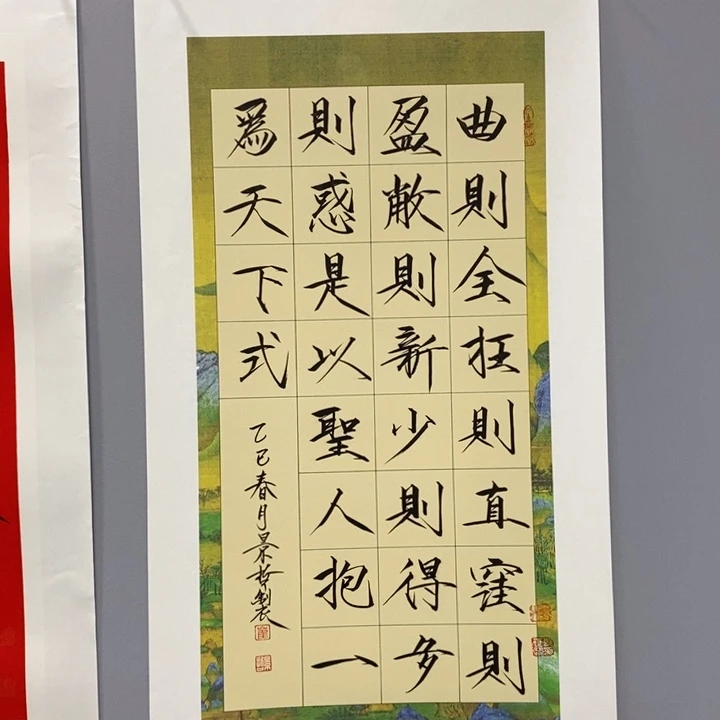 曲則全枉則直窪則
盈敝則新少則得多
則惑是以聖人抱一
爲天下式
乙巳春月景哲製